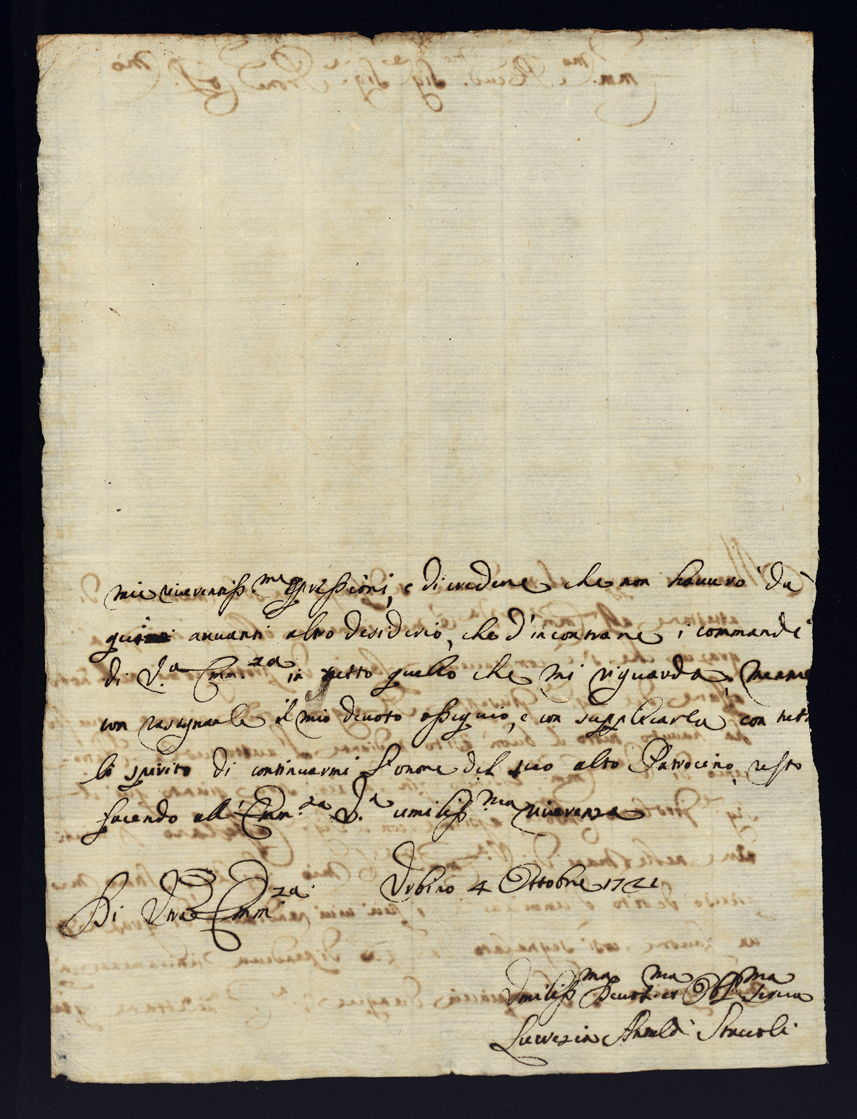 mie riverentiss.me espressioni, e di credere che non havverò da
qui avvanti altro desiderio, che d'incontrare i commandi
di V.a Emm.za in tutto quello che mi riguarda,
con rasegnarle il mio devoto ossequio, e con supplicarla con tutto
lo spirito di continuarmi l'onore del suo alto Patrocinio, resto
facendo all'Emm.za V.a umiliss.ma riverenza
Di Vra Emm.za Urbino 4 Ottobre 1721
Umiliss.ma Devot.ma et Obl.ma Serva
Lucrezia Staccoli